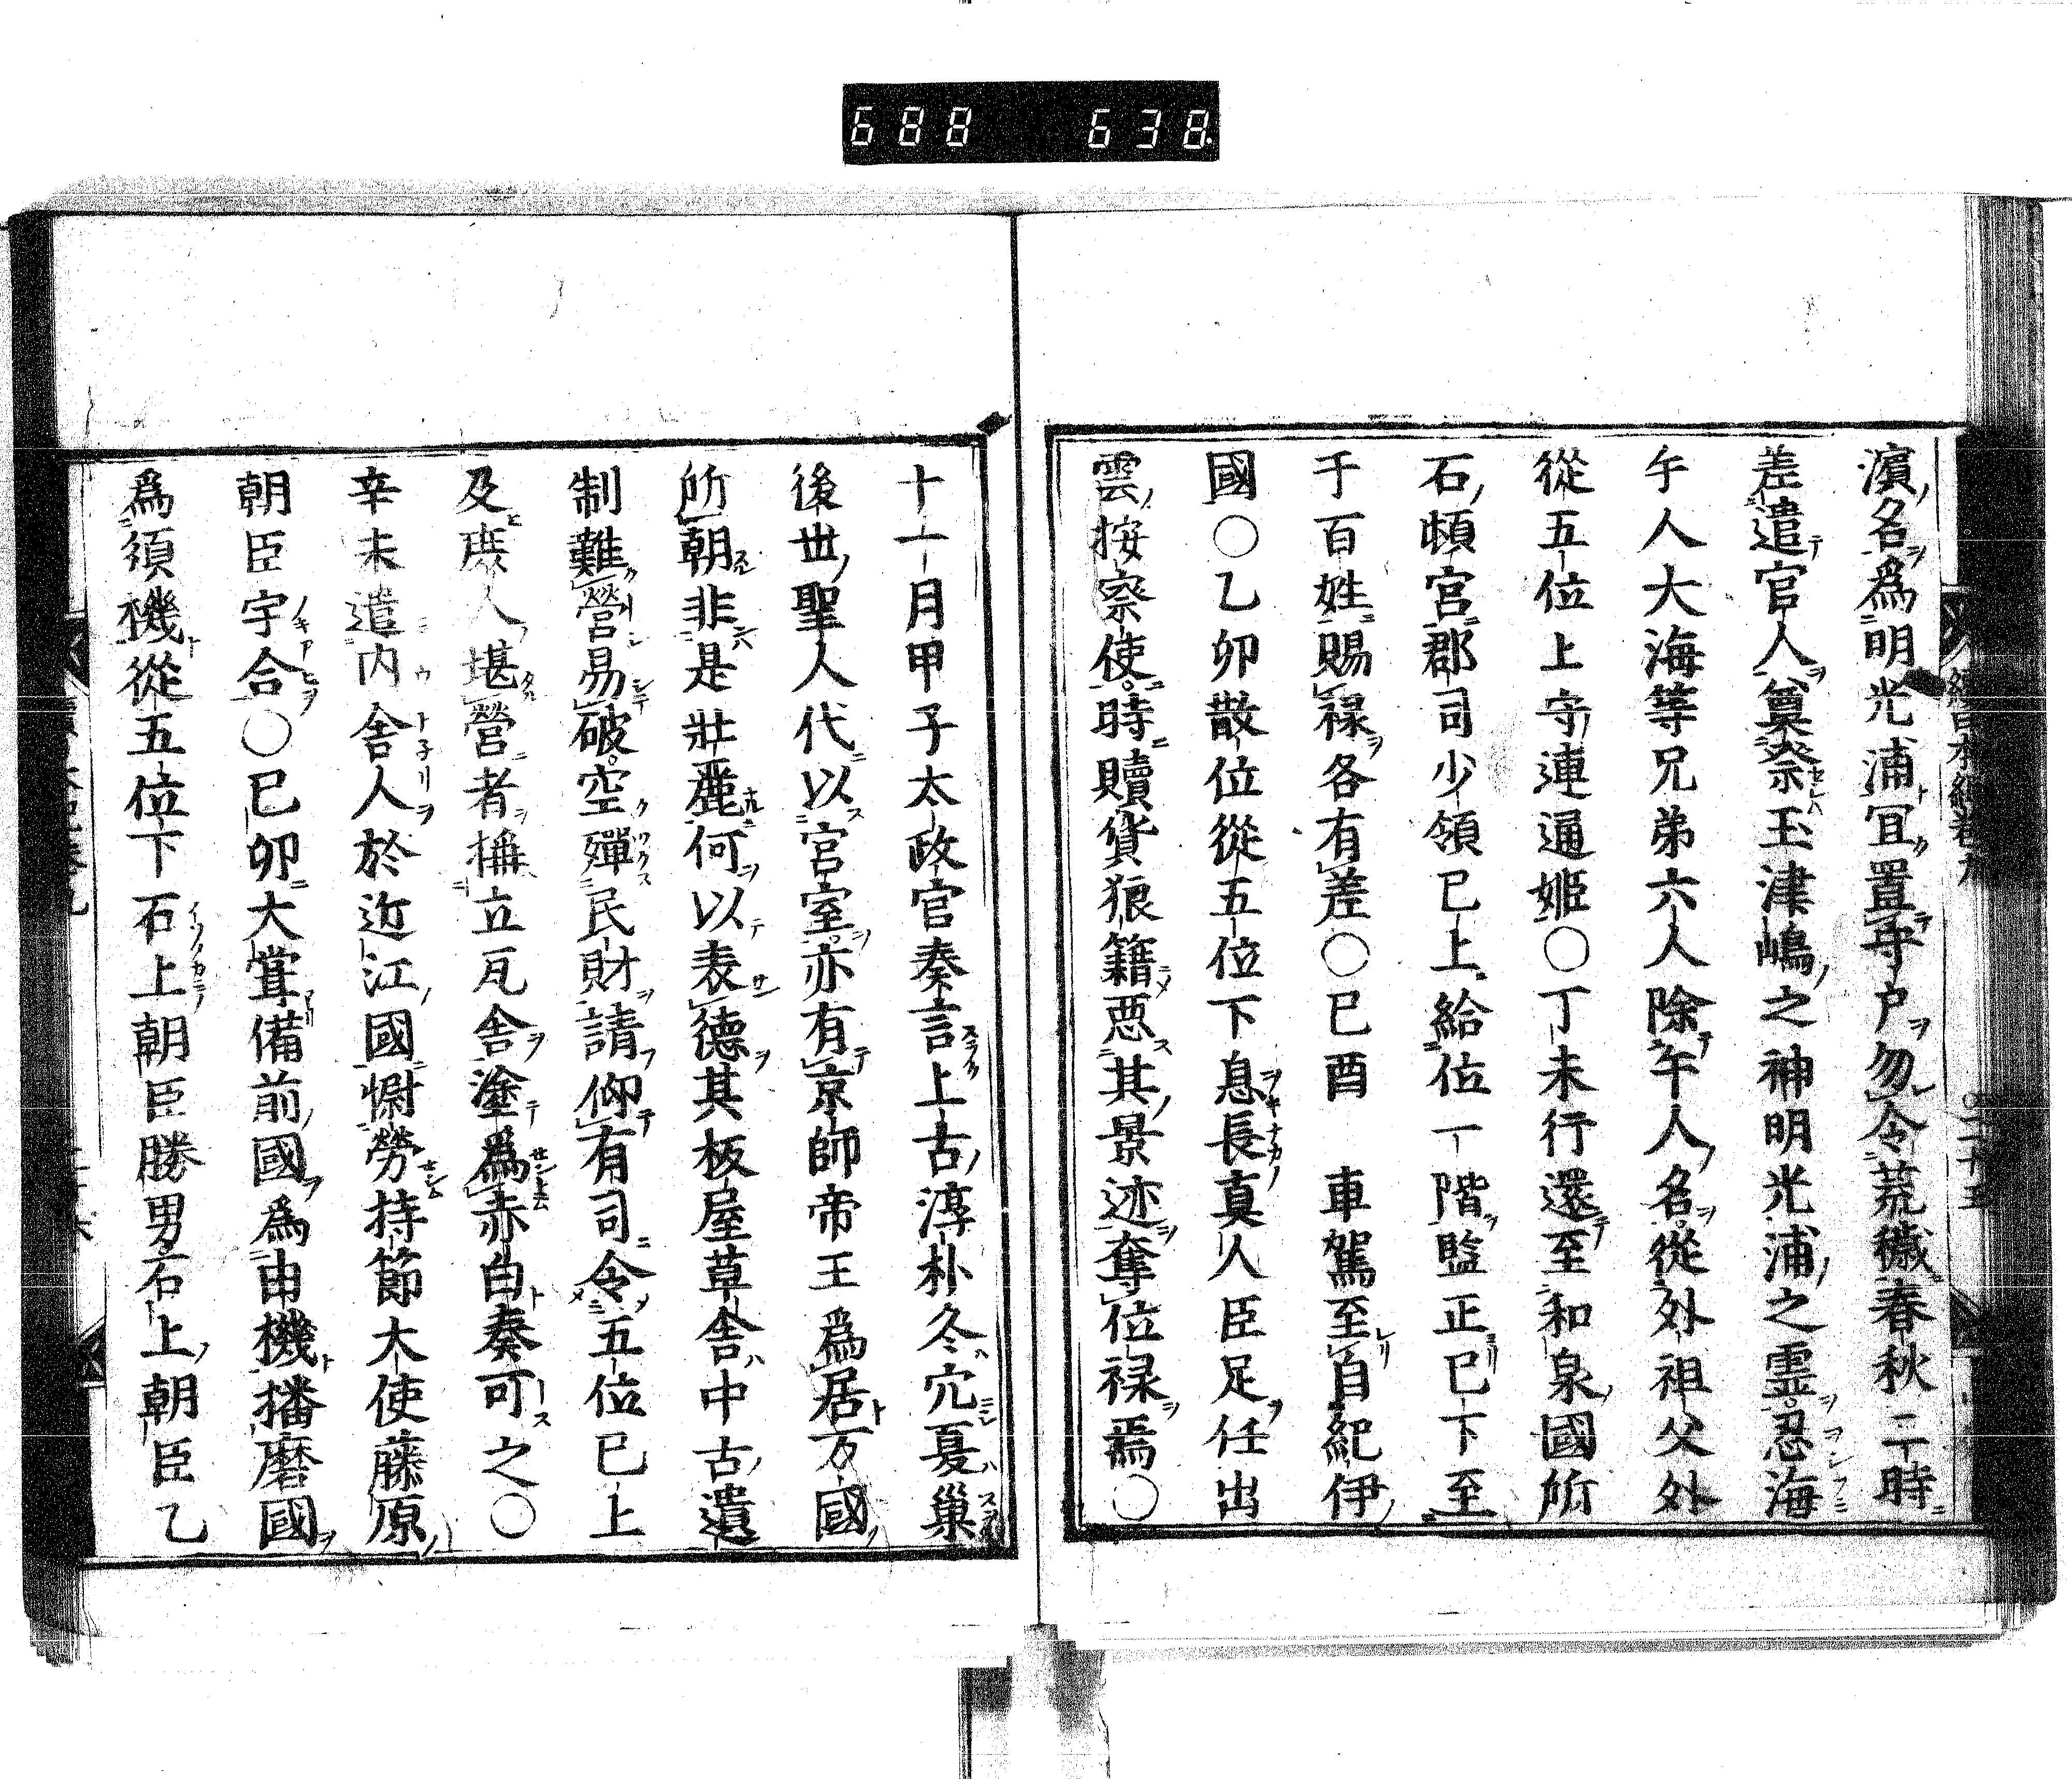 688 638
濵名爲明光浦冝置守戸勿令荒穢春秋二時
差遣官人奠祭玉津嶋之神明光浦之霊忍海
午人大海等兄弟六人除午人名從外祖父外
從五位上守連通姫〇丁未行還至和泉國所
石頓宮郡司少領已上給位一階監正已下至
于百姓賜禄各有差〇已酉　車駕至自紀伊
國〇乙卯散位從五位下息長真人臣足任出
雲按察使時贖貨狼籍悪其景迹奪位禄焉〇
十一月甲子太政官奏言上古淳朴冬穴夏巢
後世聖人代以宮室亦有京師帝王爲居万國
所朝非是壯麗何以表德其板屋草舍中古遺
制難營易破空殫民財請仰有司令五位已上
及庶人堪營者搆立瓦舍塗爲赤白奏可之〇
辛未遣内舍人於近江國慰勞持節大使藤原
朝臣宇合〇已卯大甞備前國爲由機播磨國
爲須機從五位下石上朝臣勝男石上朝臣乙